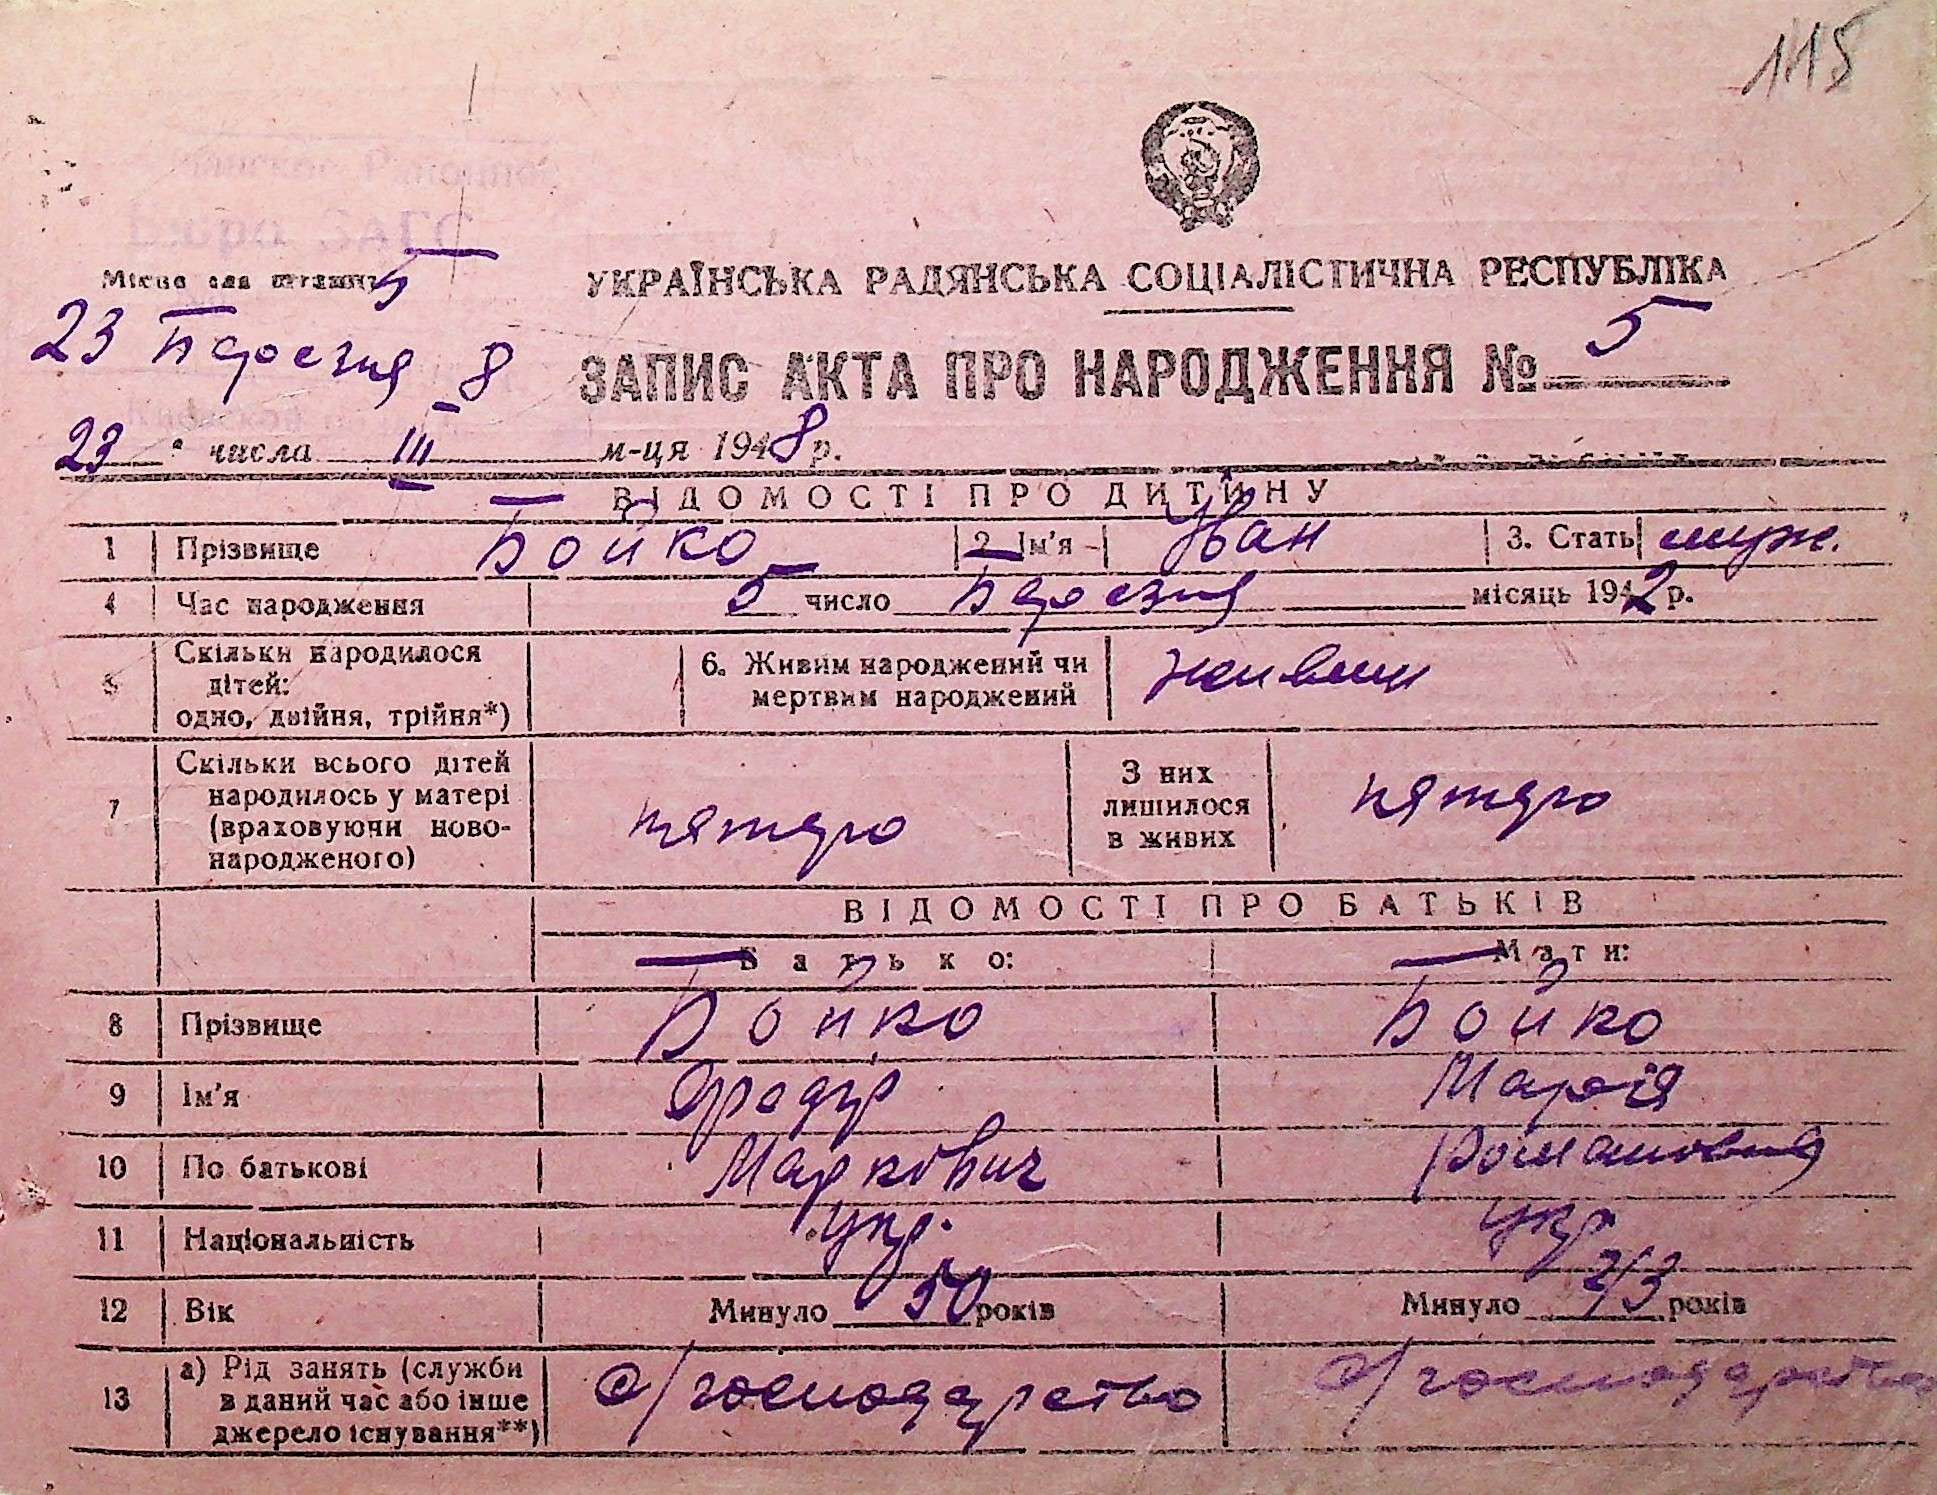 115
Бюро ЗАГС
Місце для штампу 5
УКРАЇНСЬКА РАДЯНСЬКА СОЦІАЛІСТИЧНА РЕСПУБЛІКА
23 Березня 8
ЗАПИС АКТА ПРО НАРОДЖЕННЯ № 5
23 " числа III м-ця 1948 р.
ВІДОМОСТІ ПРО ДИТИНУ
1 Прізвище Бойко 2. Ім'я Іван 3. Стать муж.
4 Час народження 5 число Березня місяць 1942 р.
5 Скільки народилося дітей: одно, двійня, трійня*) 6. Живим народжений чи мертвим народжений живим
7 Скільки всього дітей народилось у матері (враховуючи новонародженого) пятеро З них лишилося в живих пятеро
ВІДОМОСТІ ПРО БАТЬКІВ
Батько: Мати:
8 Прізвище Бойко Бойко
9 Ім'я Федір Марія
10 По батькові Маркович Романовна
11 Національність укр. укр
12 Вік Минуло 50 років Минуло 43 років
13 а) Рід занять (служби в даний час або інше джерело існування**) с/господарство с/господарство